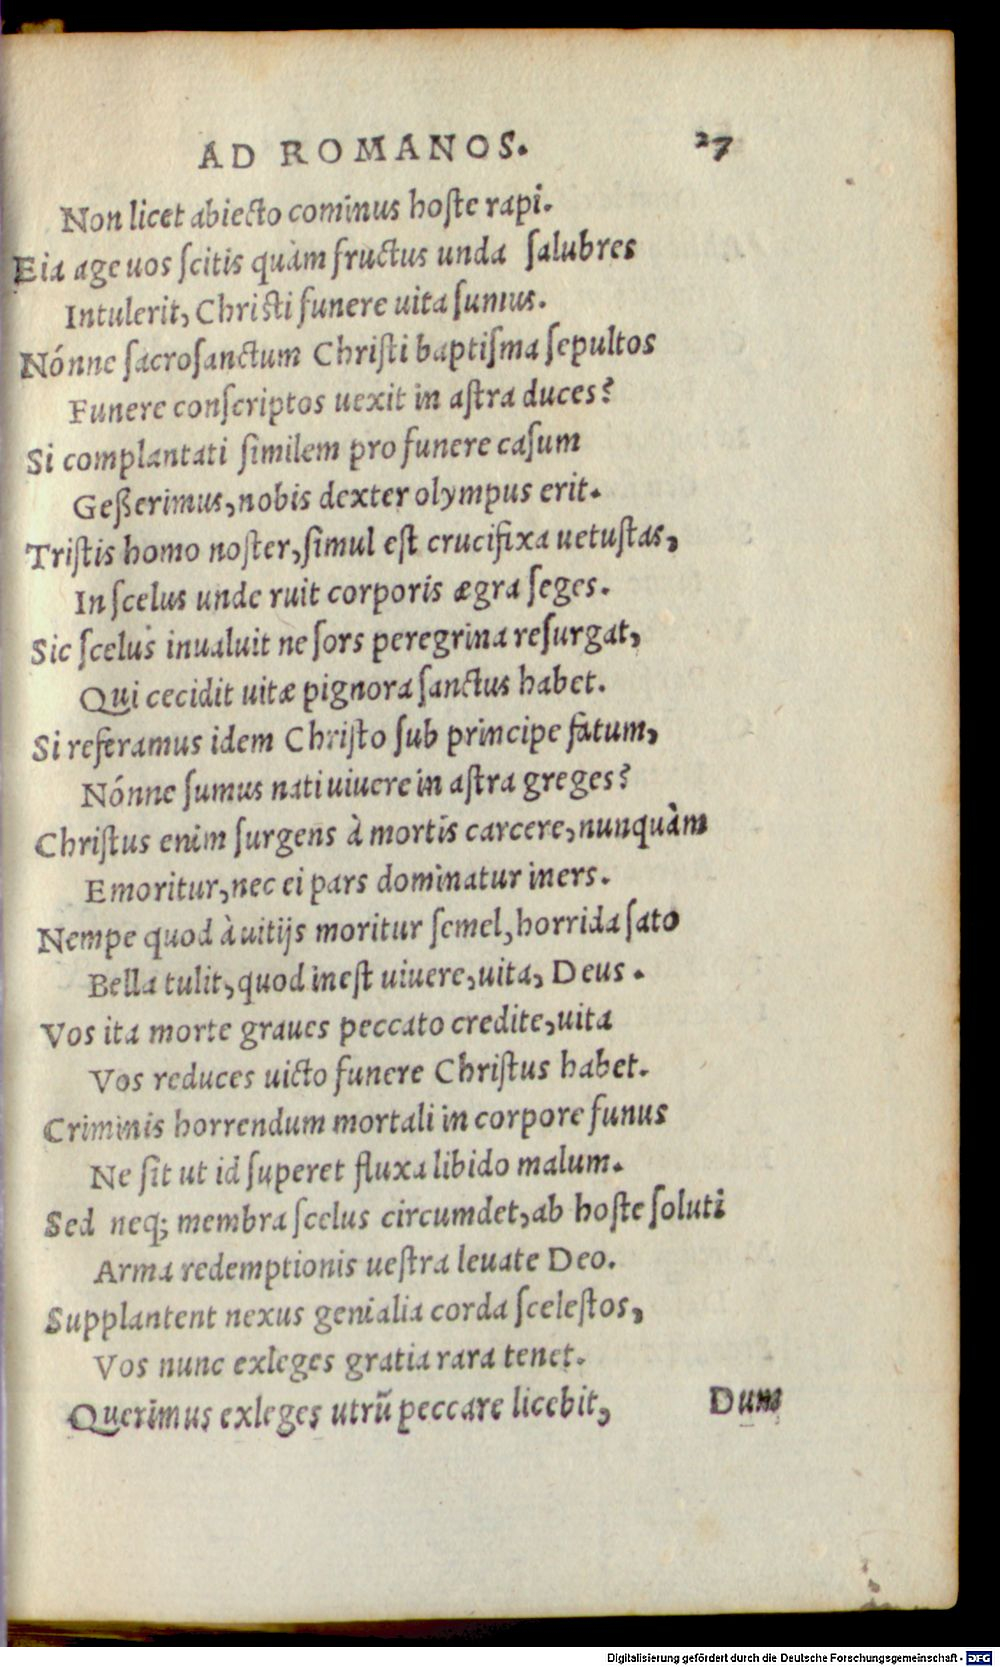 AD ROMANOS. 27
Non licet abiecto cominus hoſte rapi.
Eia age uos ſcitis quàm fructus unda ſalubres
Intulerit, Chriſti funere uita ſumus.
Nónne ſacroſanctum Chriſti baptiſma ſepultos
Funere conſcriptos uexit in aſtra duces?
Si complantati ſimilem pro funere caſum
Geßerimus, nobis dexter olympus erit.
Triſtis homo noſter, ſimul eſt crucifixa uetuſtas,
In ſcelus unde ruit corporis ægra ſeges.
Sic ſcelus inualuit ne ſors peregrina reſurgat,
Qui cecidit uitæ pignora ſanctus habet.
Si referamus idem Chriſto ſub principe fatum,
Nónne ſumus nati uiuere in aſtra greges?
Chriſtus enim ſurgens à mortis carcere, nunquàm
Emoritur, nec ei pars dominatur iners.
Nempe quod à uitijs moritur ſemel, horrida ſato
Bella tulit, quod ineſt uiuere, uita, Deus.
Vos ita morte graues peccato credite, uita
Vos reduces uicto funere Chriſtus habet.
Criminis horrendum mortali in corpore funus
Ne ſit ut id ſuperet fluxa libido malum.
Sed neq; membra ſcelus circumdet, ab hoſte ſoluti
Arma redemptionis ueſtra leuate Deo.
Supplantent nexus genialia corda ſceleſtos,
Vos nunc exleges gratia rara tenet.
Querimus exleges utrũ peccare licebit, Dum
Digitalisierung gefördert durch die Deutsche Forschungsgemeinschaft - DFG